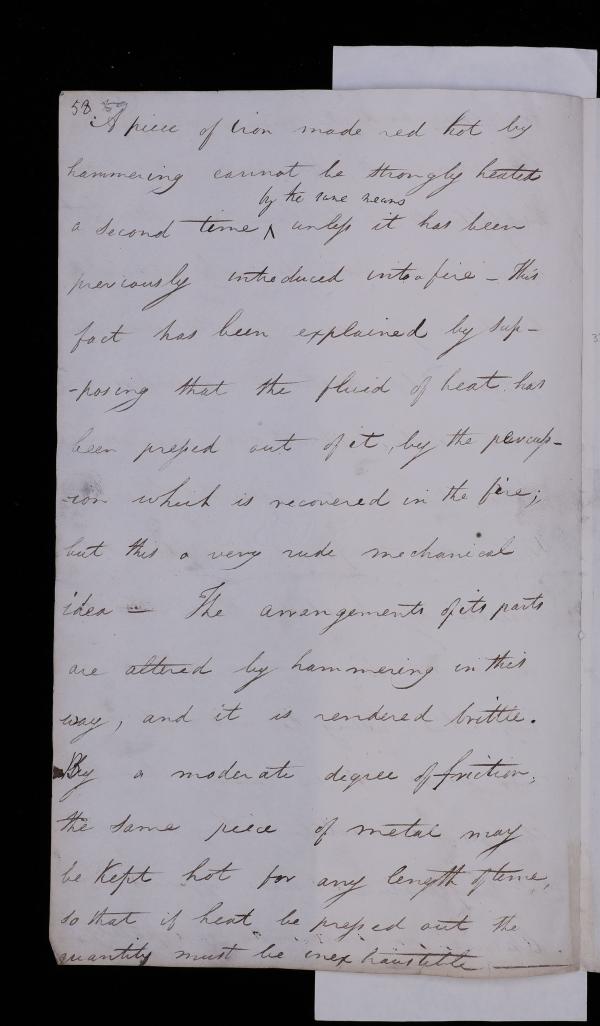 58 59
A piece of iron made red hot by
hammering cannot be strongly heated
by the same means
a second time ^ unless it has been
previously introduced into a fire - This
fact has been explained by sup-
-posing that the fluid of heat has
been pressed out of it, by the percus-
-ion which is recovered in the fire;
but this a very rude mechanical
idea — The arrangements of its parts
are altered by hammering in this
way, and it is rendered brittle.
By a moderate degree of friction,
the same piece of metal may
be kept hot for any length of time,
so that if heat be pressed out the
quantity must be inexhaustible —